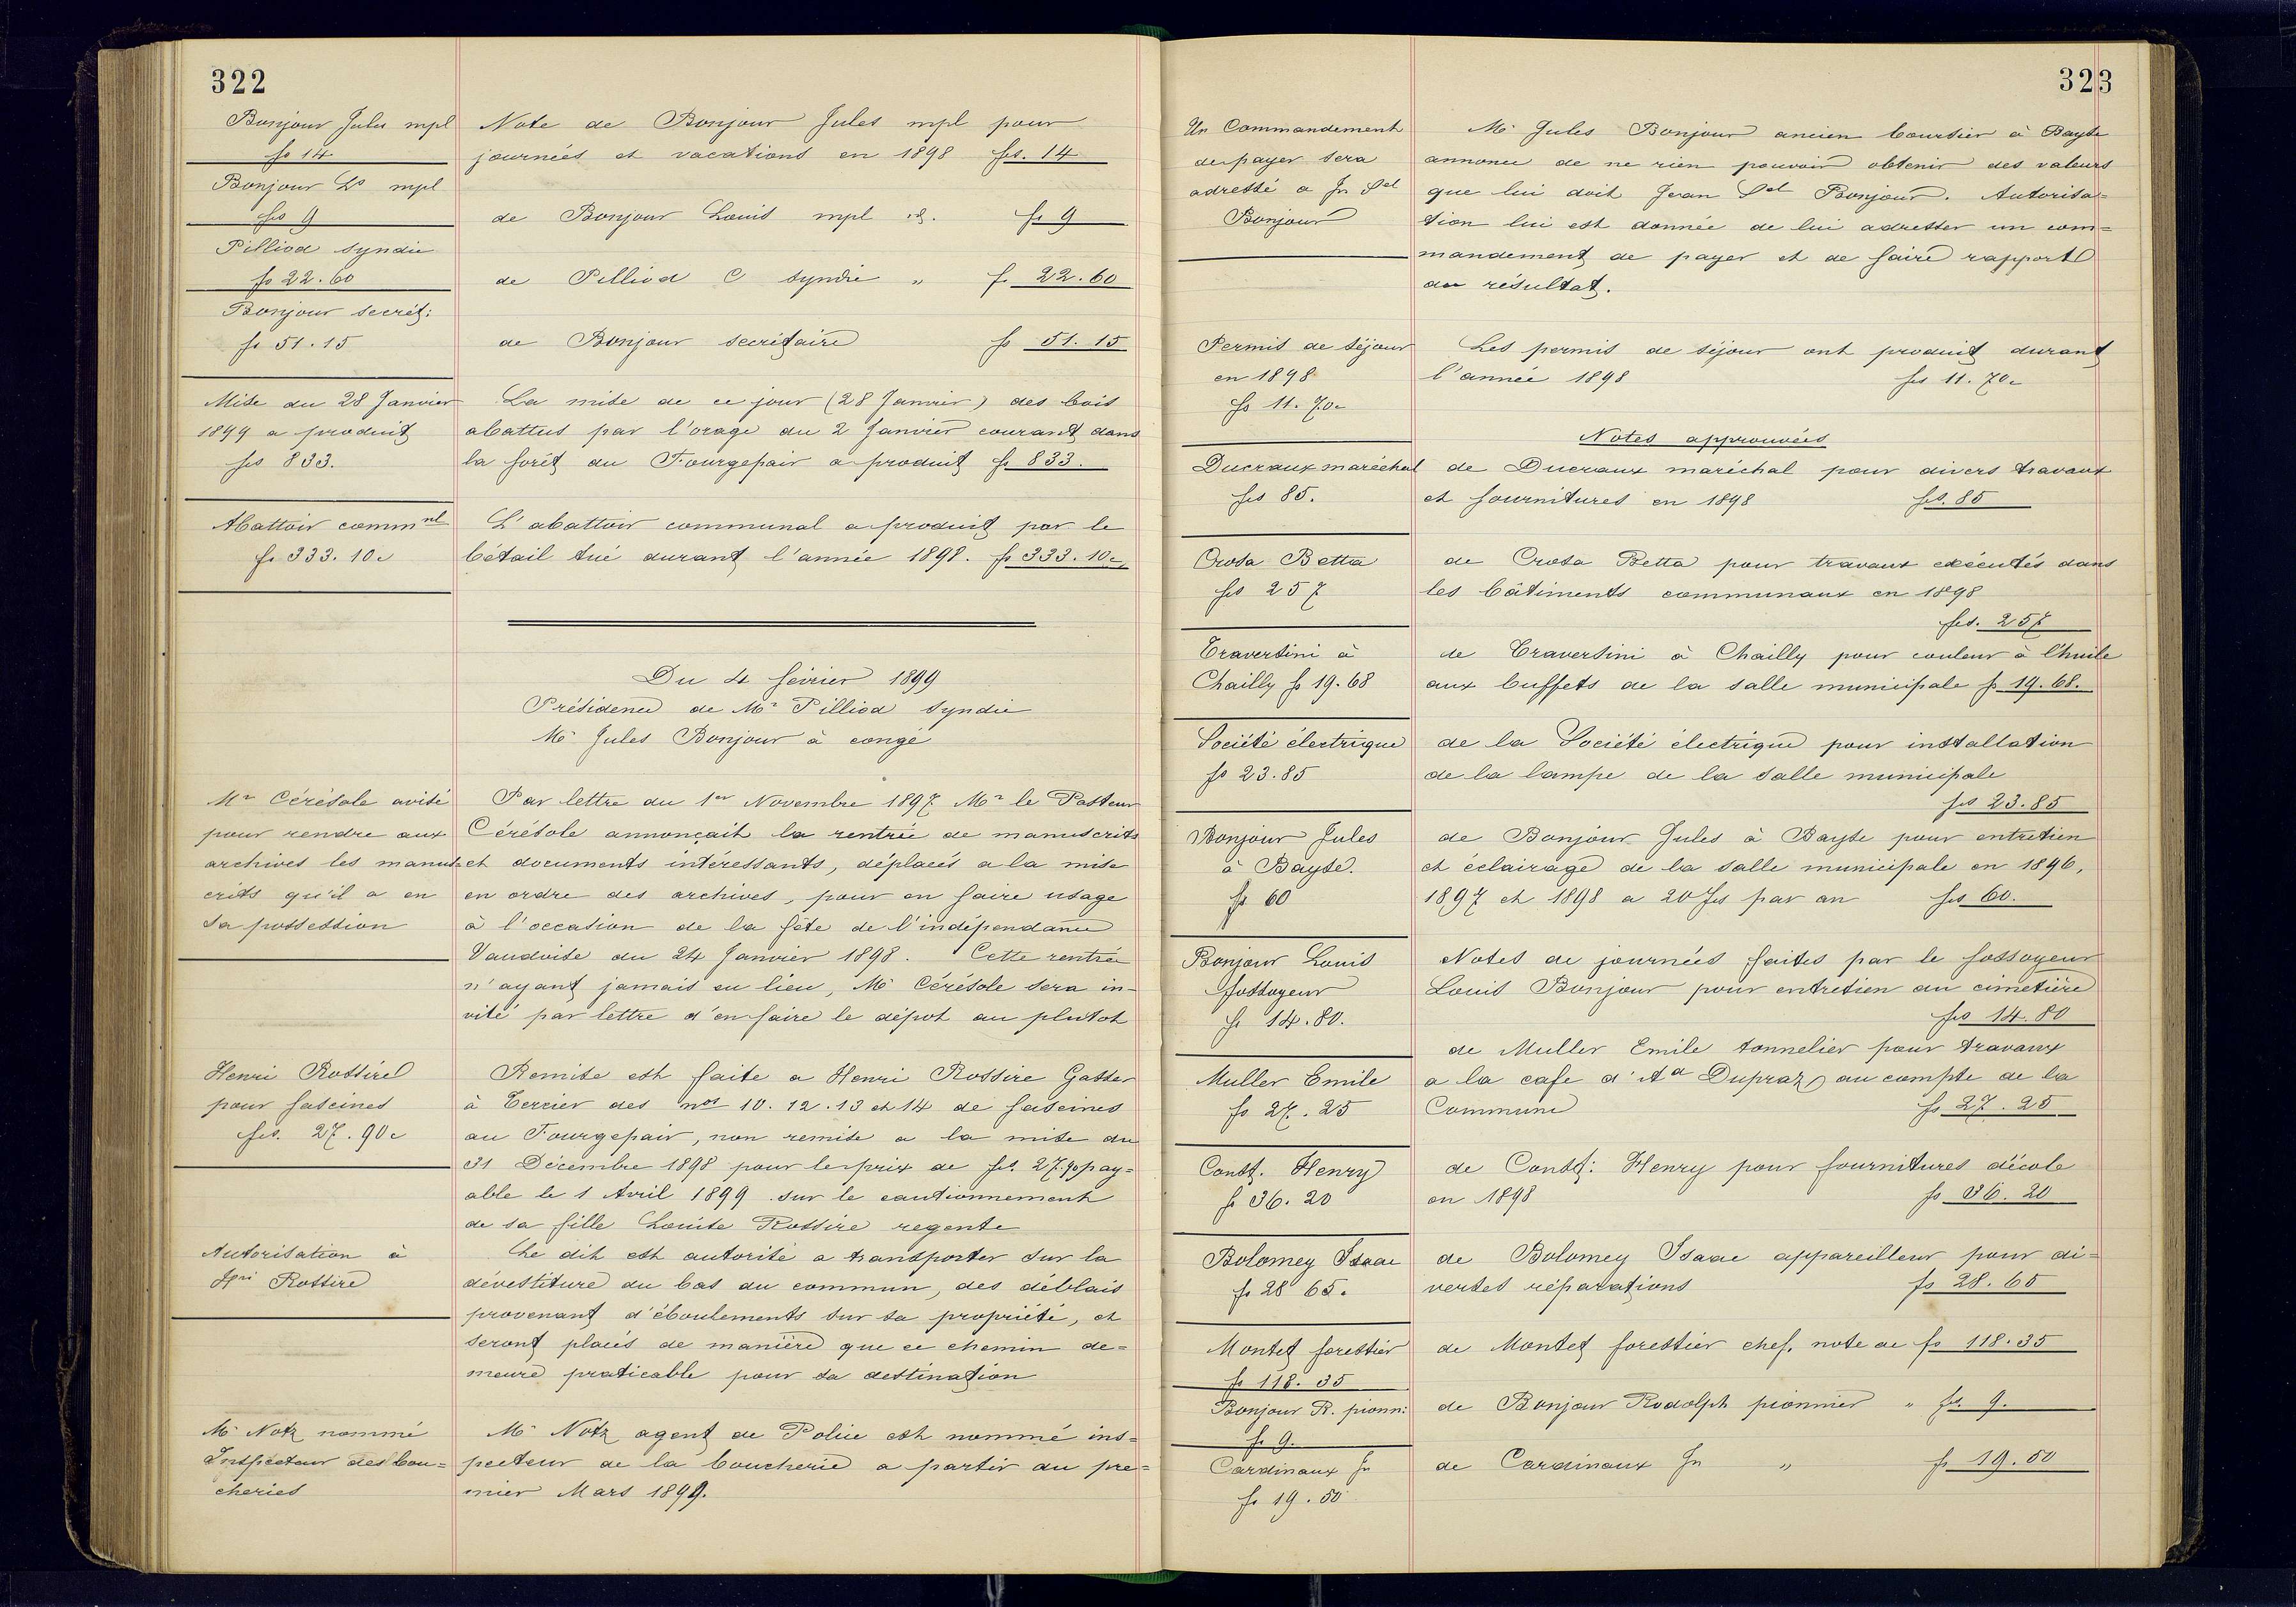 322
Bonjour Jules mpl
fs 14
Bonjour Ls mpl
frs 9
Pilliod syndic
fs 22.60
Bonjour secrét:
fr 51.15
Mise du 28 Janvier
1899 a produit
frs 833.
Abattoir commnl
fr 333.10c
Mr Cérésole avisé
pour rendre aux
archives les manus-
crits qu'il a en
sa possession
Henri Rossire
pour fascines
frs. 27.90c
Autorisation à
Hri Rossire
Mr Notz nommé
Inspecteur des bou=
cheries
Note de Bonjour Jules mpl pour
journées et vacations en 1898 frs. 14
de Bonjour Louis mpl id. fr 9
de Pilliod C syndic " fr 22.60
de Bonjour secrétaire fr 51.15
La mise de ce jour (28 Janvier) des bois
abattus par l'orage du 2 Janvier courant dans
la forêt du Fourgepair a produit fr 833.
L'abattoir communal a produit par le
bétail tué durant l'année 1898. fr 333.10c
Du 4 février 1899
Présidence de Mr Pilliod syndic
Mr Jules Bonjour à congé
Par lettre du 1er Novembre 1897 Mr le Pasteur
Cérésole annonçait la rentrée de manuscrits
et documents intéressants, déplacés a la mise
en ordre des archives, pour en faire usage
à l'occasion de la fête de l'indépendance
Vaudoise du 24 Janvier 1898. Cette rentrée
n'ayant jamais eu lieu, Mr Cérésole sera in-
vité par lettre d'en faire le dépot au plutot
Remise est faite a Henri Rossire Gasser
à Cerrier des nos 10.12.13 et 14 de fascines
au Fourgepair, non remise a la mise du
31 Décembre 1898 pour le prix de frs. 27.90 pay=
able le 1 Avril 1899 sur le cautionnement
de sa fille Louise Rossire regente
Le dit est autorisé a transporter sur la
dévestiture du bas du commun, des déblais
provenant d'éboulements sur sa propriété, et
seront placés de manière que ce chemin de=
meure praticable pour sa destination
Mr Notz agent de Police est nommé ins=
pecteur de la boucherie a partir du pre=
mier Mars 1899.
323
Un Commandement
de payer sera
adressé a Jn Sel
Bonjour
Permis de séjour
en 1898
fr 11.70c
Ducraux maréchal
frs 85.
Crosa Betta
frs 257
Traversini à
Chailly fr 19.68
Société électrique
fr 23.85
Bonjour Jules
à Bayse.
fr 60
Bonjour Louis
fossoyeur
fr 14.80.
Muller Emile
fr 27.25
Const. Henry
fr 36.20
Bolomey Isaac
fr 28 65.
Montet forestier
fr 118.35
Bonjour R. pionn:
fr 9.
Cardinaux Jn
fr 19.50
Mr Jules Bonjour ancien boursier à Bayse
annonce de ne rien pouvoir obtenir des valeurs
que lui doit Jean Sel Bonjour. Autorisa=
tion lui est donnée de lui adresser un com=
mandement de payer et de faire rapport
au résultat.
Les permis de séjour ont produit durant
l'année 1898 frs 11.70c
Notes approuvées
de Ducraux maréchal pour divers travaux
et fournitures en 1898 frs. 85
de Crosa Betta pour travaux exécutés dans
les bâtiments communaux en 1898
frs. 257
de Traversini à Chailly pour couleur à l'huile
aux buffets de la salle municipale fr 19.68.
de la Société électrique pour installation
de la lampe de la salle municipale
frs 23.85
de Bonjour Jules à Bayse pour entretien
et éclairage de la salle municipale en 1896,
1897 et 1898 a 20 frs par an frs 60.
Notes de journées faites par le fossoyeur
Louis Bonjour pour entretien du cimetière
frs 14.80
de Muller Emile tonnelier pour travaux
a la cafe d'Ad Dupraz au compte de la
Commune fr 27.25
de Const: Henry pour fournitures d'école
en 1898 fr 36.20
de Bolomey Isaac appareilleur pour di=
verses réparations fr 28.65
de Montet forestier chef, note de fr 118.35
de Bonjour Rodolph pionnier " fr 9.
de Cardinaux Jn " fr 19.50